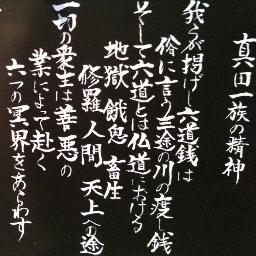 真田一族の精神
我らが掲げし六道銭は
俗に言う三途の川の渡し銭
そして六道とは仏道における
地獄 餓鬼 畜生
修羅 人間 天上への途
一切の衆生は善悪の
業によって赴く
六つの冥界をあらわす